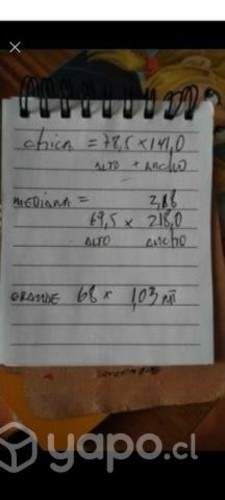 chica = 78,5 x 141,0
ALTO + ANCHO
MEDIANA = 2,18
69,5 x 218,0
ALTO ANCHO
GRANDE 68 x 1,03 mt
yapo.cl